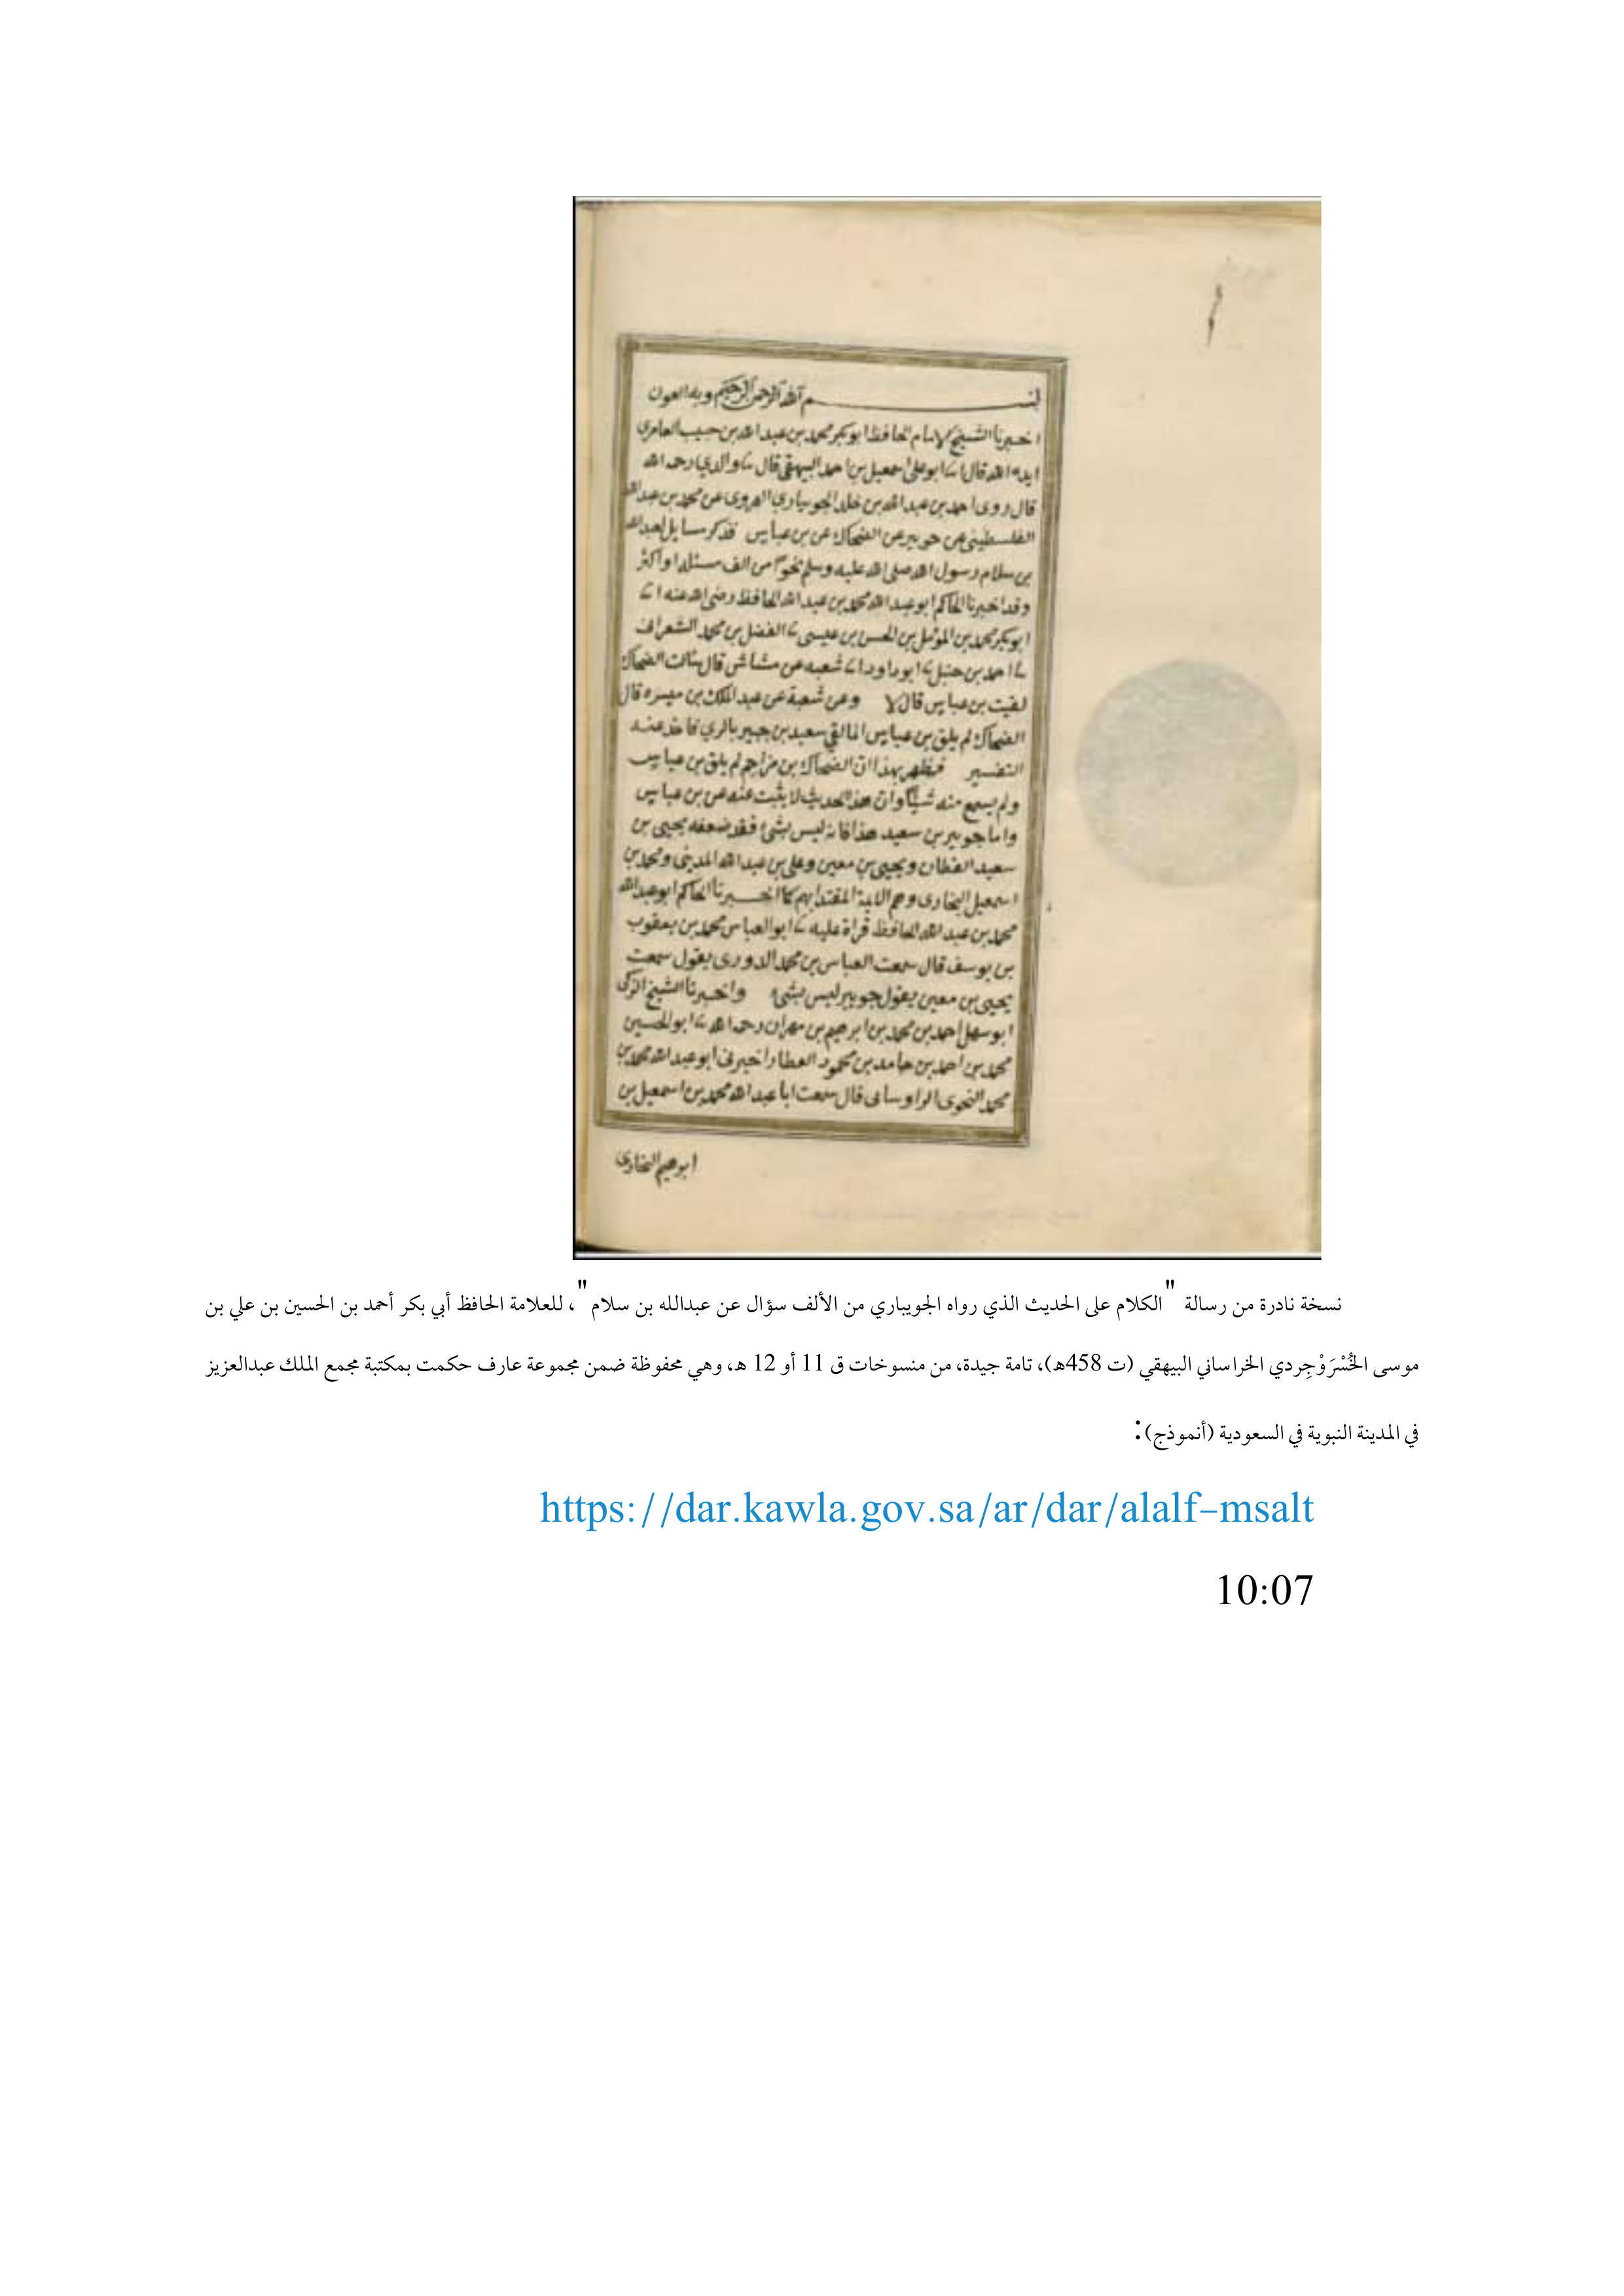 بسم الله الرحمن الرحيم وبه العون
اخبرنا الشيخ الامام الحافظ ابو بكر محمد بن عبد الله بن حبيب العامري
ايده الله قال انا ابو علي اسمعيل بن احمد البيهقي قال نا والدي رحمه الله
قال روى احمد بن عبد الله بن خلد الجويباري الهروي عن محمد بن عبد الله
الفلسطيني عن جويبر عن الضحاك عن بن عباس فذكر مسايل لعبد الله
بن سلام رسول الله صلى الله عليه وسلم نحوًا من الف مسئلة او اكثر
وقد اخبرنا الحاكم ابو عبد الله محمد بن عبد الله الحافظ رضي الله عنه انا
ابو بكر محمد بن المؤمل بن الحسن بن عيسى نا الفضل بن محمد الشعراني
نا احمد بن حنبل نا ابو داود انا شعبه عن مشاش قال سالت الضحاك
لقيت بن عباس قال لا وعن شعبة عن عبد الملك بن ميسره قال
الضحاك لم يلق بن عباس انما لقي سعيد بن جبير بالري فاخذ عنه
التفسير فظهر بهذا ان الضحاك بن مزاحم لم يلق بن عباس
ولم يسمع منه شيًا وان هذا الحديث لا يثبت عنه عن بن عباس
واما جويبر بن سعيد هذا فانه ليس بشئ فقد ضعفه يحيى بن
سعيد القطان ويحيى بن معين وعلي بن عبد الله المديني ومحمد بن
اسمعيل البخاري وهم الايمة المقتدا بهم كما اخبرنا الحاكم ابو عبد الله
محمد بن عبد الله الحافظ قراة عليه نا ابو العباس محمد بن يعقوب
بن يوسف قال سمعت العباس بن محمد الدوري يقول سمعت
يحيى بن معين يقول جويبر ليس بشئ واخبرنا الشيخ الزكي
ابو سهل احمد بن محمد بن ابرهيم بن مهران رحمه الله نا ابو الحسين
محمد بن احمد بن حامد بن محمود العطار اخبرني ابو عبد الله محمد بن
محمد النحوي الراوساني قال سمعت ابا عبد الله محمد بن اسمعيل بن
ابرهيم البخاري
نسخة نادرة من رسالة "الكلام على الحديث الذي رواه الجويباري من الألف سؤال عن عبدالله بن سلام"، للعلامة الحافظ أبي بكر أحمد بن الحسين بن علي بن
موسى الخُسْرَوْجِردي الخراساني البيهقي (ت 458هـ)، تامة جيدة، من منسوخات ق 11 أو 12 هـ، وهي محفوظة ضمن مجموعة عارف حكمت بمكتبة مجمع الملك عبدالعزيز
في المدينة النبوية في السعودية (أنموذج):
https://dar.kawla.gov.sa/ar/dar/alalf-msalt
10:07